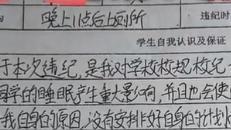 晚上11点后上厕所 违纪时
学生自我认识及保证
于本次违纪，是我对学校校规校纪
同学的睡眠产生重大影响，并且也会使
我自身的原因，没有安排好自己的计划